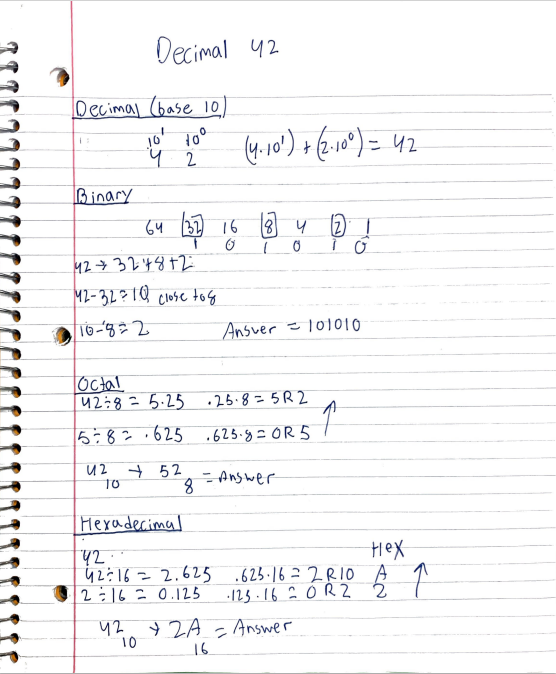 Decimal 42
Decimal (base 10)
10¹ 10⁰
4 2 (4·10¹) + (2·10⁰) = 42
Binary
64 32 16 8 4 2 1
1 0 1 0 1 0
42 → 32+8+2
42-32=10 close to 8
10-8=2 Answer = 101010
Octal
42÷8 = 5.25 .25·8 = 5R2
5÷8 = .625 .625·8 = 0R5 ↑
42₁₀ → 52₈ = Answer
Hexadecimal
42 Hex
42÷16 = 2.625 .625·16 = 2 R10 A
2÷16 = 0.125 .125·16 = 0 R2 2 ↑
42₁₀ → 2A₁₆ = Answer